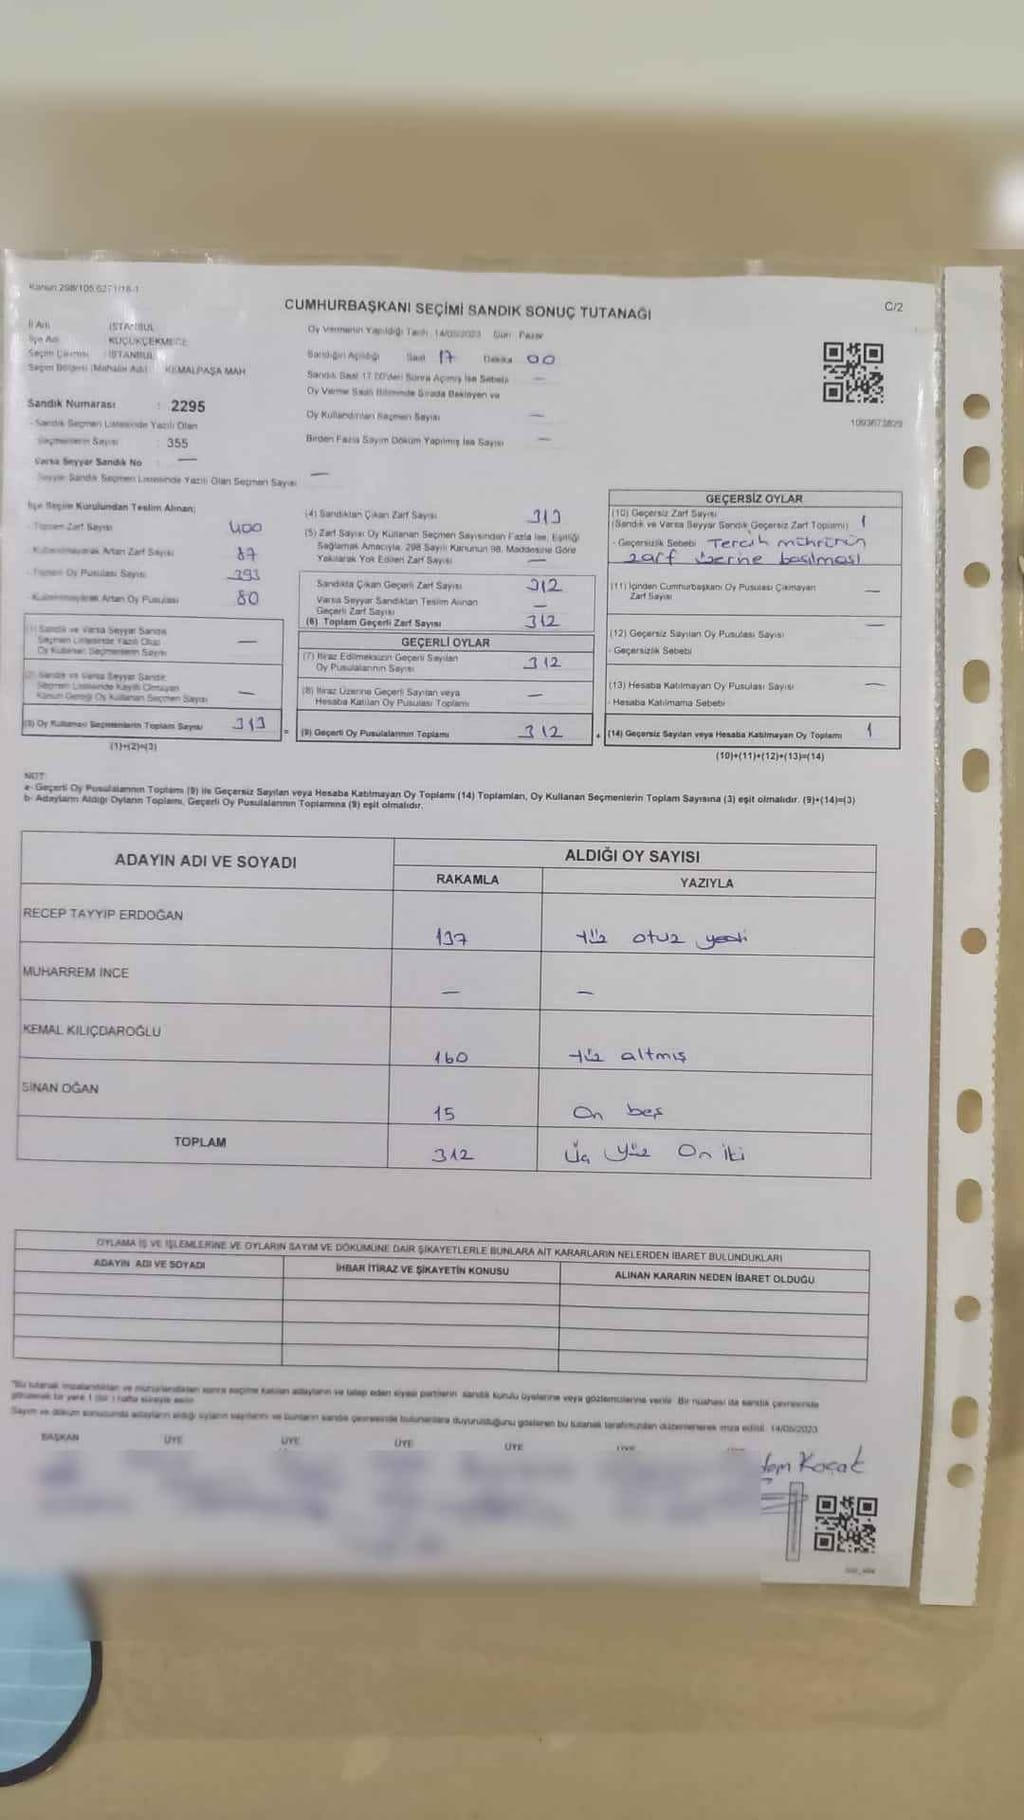 Kanun 298/105,6271/18-1
C/2
CUMHURBAŞKANI SEÇİMİ SANDIK SONUÇ TUTANAĞI
İl Adı İSTANBUL
İlçe Adı KÜÇÜKÇEKMECE
Seçim Çevresi İSTANBUL
Seçim Bölgesi (Mahalle Adı) KEMALPAŞA MAH
Sandık Numarası : 2295
- Sandık Seçmen Listesinde Yazılı Olan
Seçmenlerin Sayısı : 355
Varsa Seyyar Sandık No —
Seyyar Sandık Seçmen Listesinde Yazılı Olan Seçmen Sayısı —
Oy Vermenin Yapıldığı Tarih 14/05/2023 Gün Pazar
Sandığın Açıldığı Saat 17 Dakika 00
Sandık Saat 17.00'den Sonra Açılmış İse Sebebi —
Oy Verme Saati Bitiminde Sırada Bekleyen ve
Oy Kullandırılan Seçmen Sayısı —
Birden Fazla Sayım Döküm Yapılmış İse Sayısı —
1093673829
İlçe Seçim Kurulundan Teslim Alınan;
- Toplam Zarf Sayısı 400
- Kullanılmayarak Artan Zarf Sayısı 87
- Toplam Oy Pusulası Sayısı 393
- Kullanılmayarak Artan Oy Pusulası 80
(1) Sandık ve Varsa Seyyar Sandık
Seçmen Listesinde Yazılı Olup
Oy Kullanan Seçmenlerin Sayısı —
(2) Sandık ve Varsa Seyyar Sandık
Seçmen Listesinde Kayıtlı Olmayan
Kanun Gereği Oy Kullanan Seçmen Sayısı —
(3) Oy Kullanan Seçmenlerin Toplam Sayısı 313
(1)+(2)=(3)
(4) Sandıktan Çıkan Zarf Sayısı 313
(5) Zarf Sayısı Oy Kullanan Seçmen Sayısından Fazla İse, Eşitliği
Sağlamak Amacıyla, 298 Sayılı Kanunun 98. Maddesine Göre
Yakılarak Yok Edilen Zarf Sayısı —
Sandıkta Çıkan Geçerli Zarf Sayısı 312
Varsa Seyyar Sandıktan Teslim Alınan
Geçerli Zarf Sayısı —
(6) Toplam Geçerli Zarf Sayısı 312
GEÇERLİ OYLAR
(7) İtiraz Edilmeksizin Geçerli Sayılan
Oy Pusulalarının Sayısı 312
(8) İtiraz Üzerine Geçerli Sayılan veya
Hesaba Katılan Oy Pusulası Toplamı —
(9) Geçerli Oy Pusulalarının Toplamı 312
GEÇERSİZ OYLAR
(10) Geçersiz Zarf Sayısı
(Sandık ve Varsa Seyyar Sandık Geçersiz Zarf Toplamı) 1
- Geçersizlik Sebebi Tercih mührünün
zarf üzerine basılması
(11) İçinden Cumhurbaşkanı Oy Pusulası Çıkmayan
Zarf Sayısı —
(12) Geçersiz Sayılan Oy Pusulası Sayısı —
- Geçersizlik Sebebi
(13) Hesaba Katılmayan Oy Pusulası Sayısı —
- Hesaba Katılmama Sebebi
(14) Geçersiz Sayılan veya Hesaba Katılmayan Oy Toplamı 1
(10)+(11)+(12)+(13)=(14)
NOT:
a- Geçerli Oy Pusulalarının Toplamı (9) ile Geçersiz Sayılan veya Hesaba Katılmayan Oy Toplamı (14) Toplamları, Oy Kullanan Seçmenlerin Toplam Sayısına (3) eşit olmalıdır. (9)+(14)=(3)
b- Adayların Aldığı Oyların Toplamı, Geçerli Oy Pusulalarının Toplamına (9) eşit olmalıdır.
ADAYIN ADI VE SOYADI
ALDIĞI OY SAYISI
RAKAMLA YAZIYLA
RECEP TAYYİP ERDOĞAN 137 yüz otuz yedi
MUHARREM İNCE — —
KEMAL KILIÇDAROĞLU 160 yüz altmış
SİNAN OĞAN 15 On beş
TOPLAM 312 Üç yüz On iki
OYLAMA İŞ VE İŞLEMLERİNE VE OYLARIN SAYIM VE DÖKÜMÜNE DAİR ŞİKAYETLERLE BUNLARA AİT KARARLARIN NELERDEN İBARET BULUNDUKLARI
ADAYIN ADI VE SOYADI İHBAR İTİRAZ VE ŞİKAYETİN KONUSU ALINAN KARARIN NEDEN İBARET OLDUĞU
"Bu tutanak imzalandıktan ve mühürlendikten sonra seçime katılan adayların ve talep eden siyasi partilerin sandık kurulu üyelerine veya gözlemcilerine verilir. Bir nüshası da sandık çevresinde
görülecek bir yere 1 (bir) hafta süreyle asılır.
Sayım ve döküm sonucunda adayların aldığı oyların sayılarını ve bunların sandık çevresinde bulunanlara duyurulduğunu gösteren bu tutanak tarafımızdan düzenlenerek imza edildi. 14/05/2023
BAŞKAN ÜYE ÜYE ÜYE ÜYE
Koçak